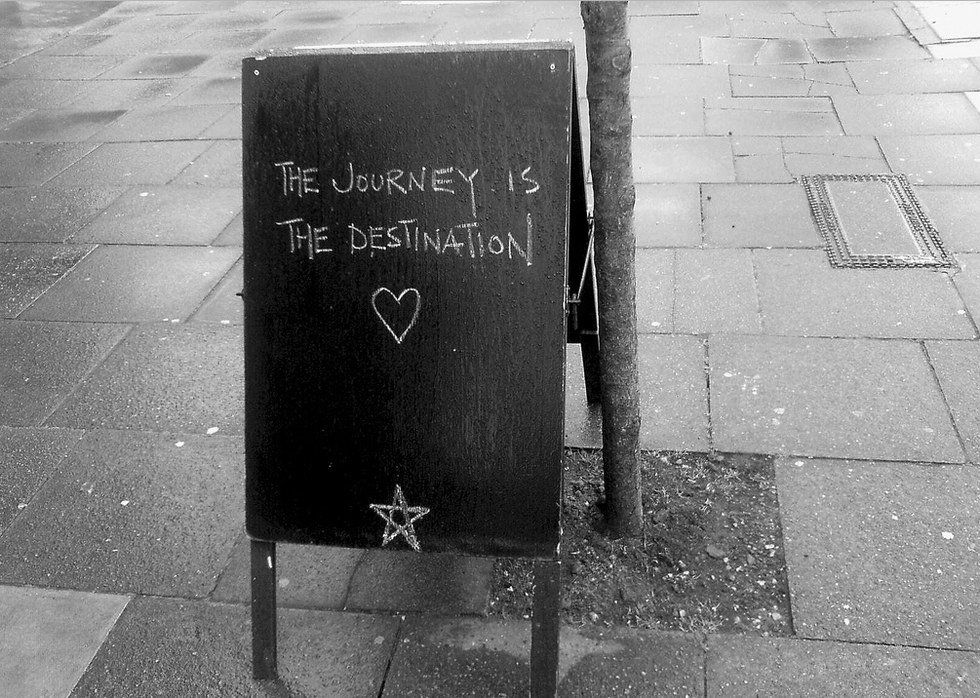 THE JOURNEY IS
THE DESTINATION